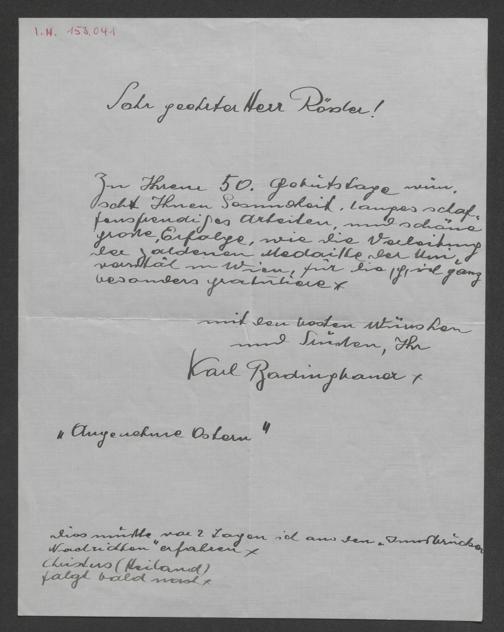 I.N. 153.041
Sehr geehrter Herr Rössler!
Zu Ihrem 50. Geburtstage wün-
scht Ihnen Gesundheit, langes schaf-
fensfreudiges Arbeiten, und schöne
große Erfolge, wie die Verleihung
der goldenen Medaille der Uni-
versität in Wien, für die ich ganz
besonders gratuliere x
mit den besten Wünschen
und Grüssen, Ihr
Karl Badinghauer x
„Angenehme Ostern"
Dies müßte vor 2 Tagen ich aus den „Innsbrucker
Nachrichten" erfahren x
(Heiland)
folgt bald nach x